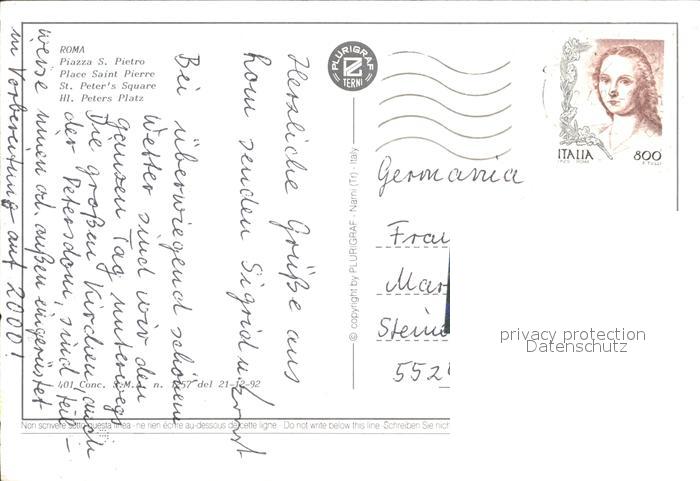 ROMA
Piazza S. Pietro
Place Saint Pierre
St. Peter's Square
Hl. Peters Platz
Herzliche Grüße aus
Rom senden Sigrid u. Ernst
Bei überwiegend schönem
Wetter sind wir den
ganzen Tag unterwegs
Die großen Kirchen, auch
der Petersdom, sind teil-
weise innen od. außen eingerüstet
in Vorbereitung auf 2000!
401 Conc. S.M. n. 57 del 21-12-92
PLURIGRAF
TERNI
© copyright by PLURIGRAF - Narni (Tr) - Italy
ITALIA 800
Germania
Frau
Mar
Stein
552
privacy protection
Datenschutz
Non scrivere sotto questa linea - ne rien écrire au-dessous de cette ligne - Do not write below this line - Schreiben Sie nich